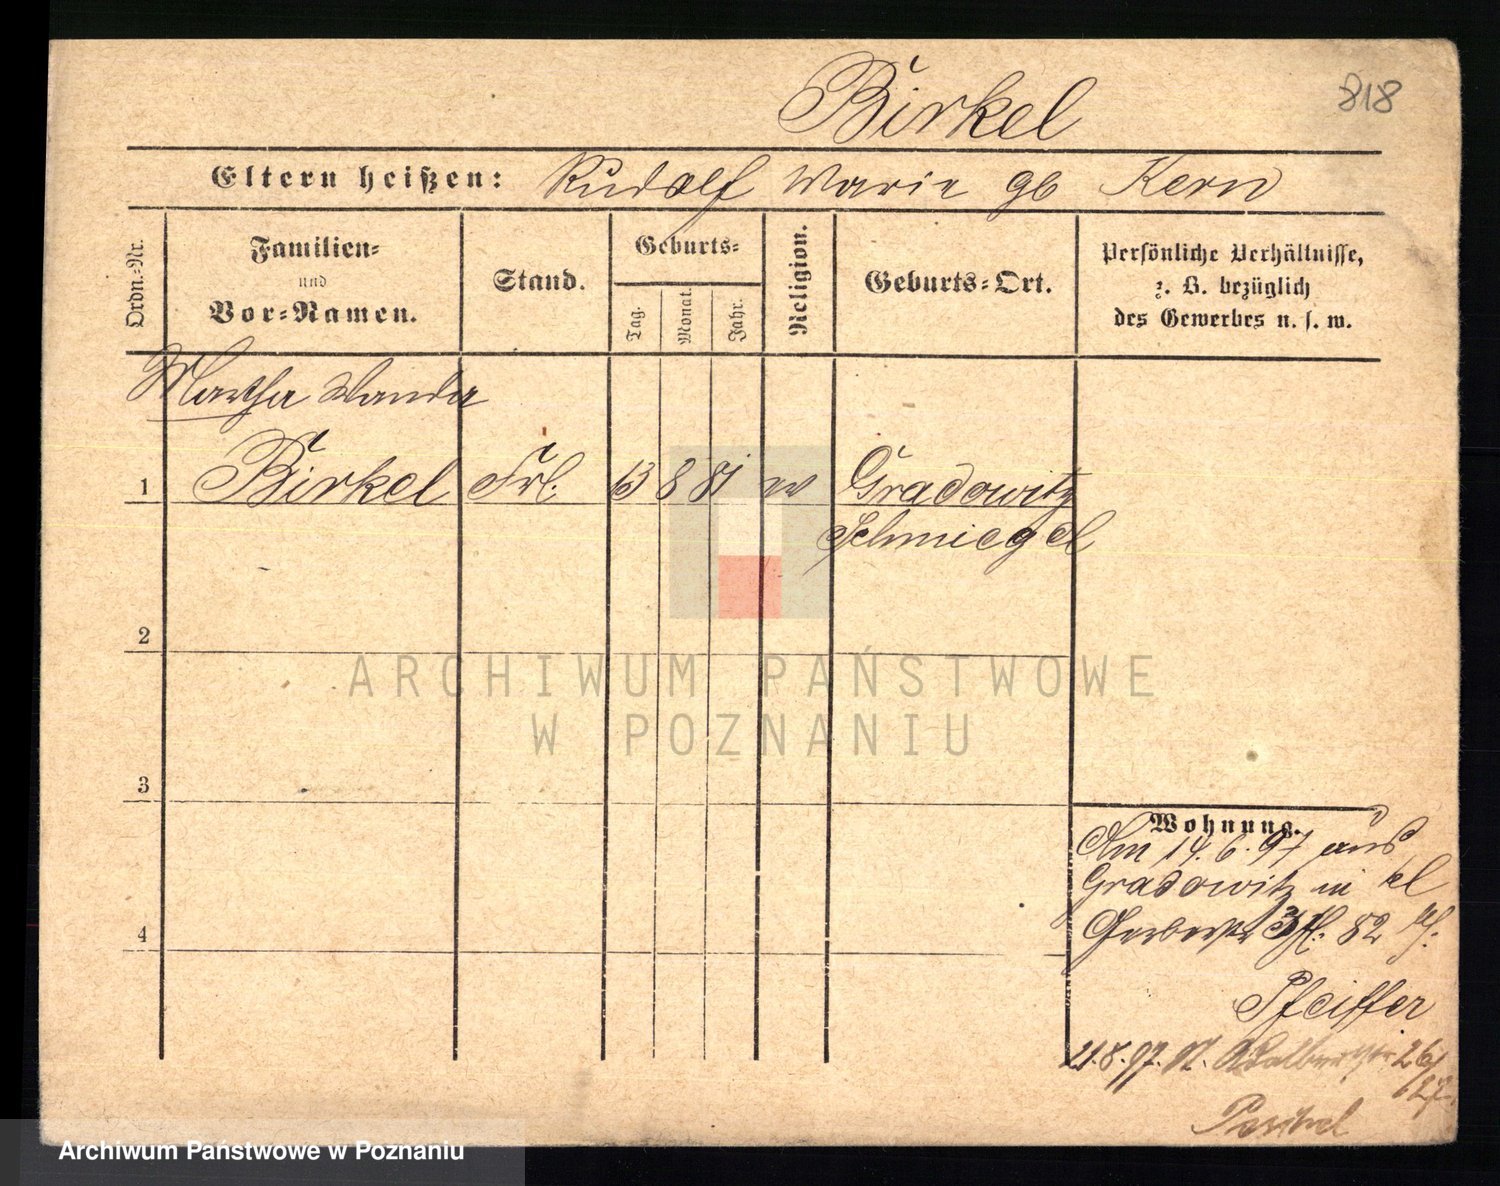 Birkel
818
Eltern heißen: Rudolf Marie gb Kern
Ordn.-Nr.
Familien-
und
Vor-Namen.
Stand.
Geburts-
Tag.
Monat.
Jahr.
Religion.
Geburts-Ort.
Persönliche Verhältnisse,
z. B. bezüglich
des Gewerbes u. s. w.
Martha Wanda
1 Birkel Frl. 13 8 81 ev Gradowitz
Schmiegel
2
3
4
Wohnung.
Am 14. 6. 97 aus
Gradowitz in kl
Gerberstr 82
Pfeiffer
21. 8. 97. Adalbertstr 26/
27
ARCHIWUM PAŃSTWOWE
W POZNANIU
Archiwum Państwowe w Poznaniu